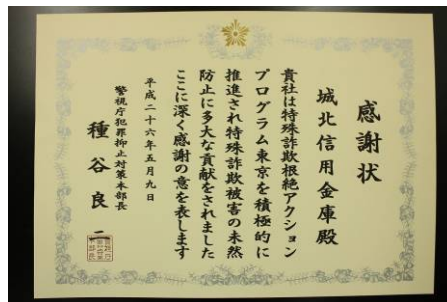 感謝状
城北信用金庫殿
貴社は特殊詐欺根絶アクション
プログラム東京を積極的に
推進され特殊詐欺被害の未然
防止に多大な貢献をされました
ここに深く感謝の意を表します
平成二十六年五月九日
警視庁犯罪抑止対策本部長
種谷良二